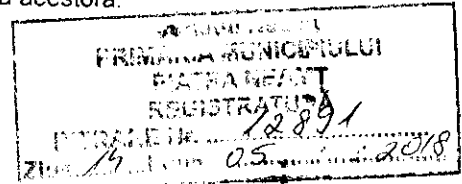 acestora.
PRIMĂRIA MUNICIPIULUI
PIATRA NEAMŢ
REGISTRATURĂ
INTRARE Nr. 12891
Ziua 14 Luna 05 2018